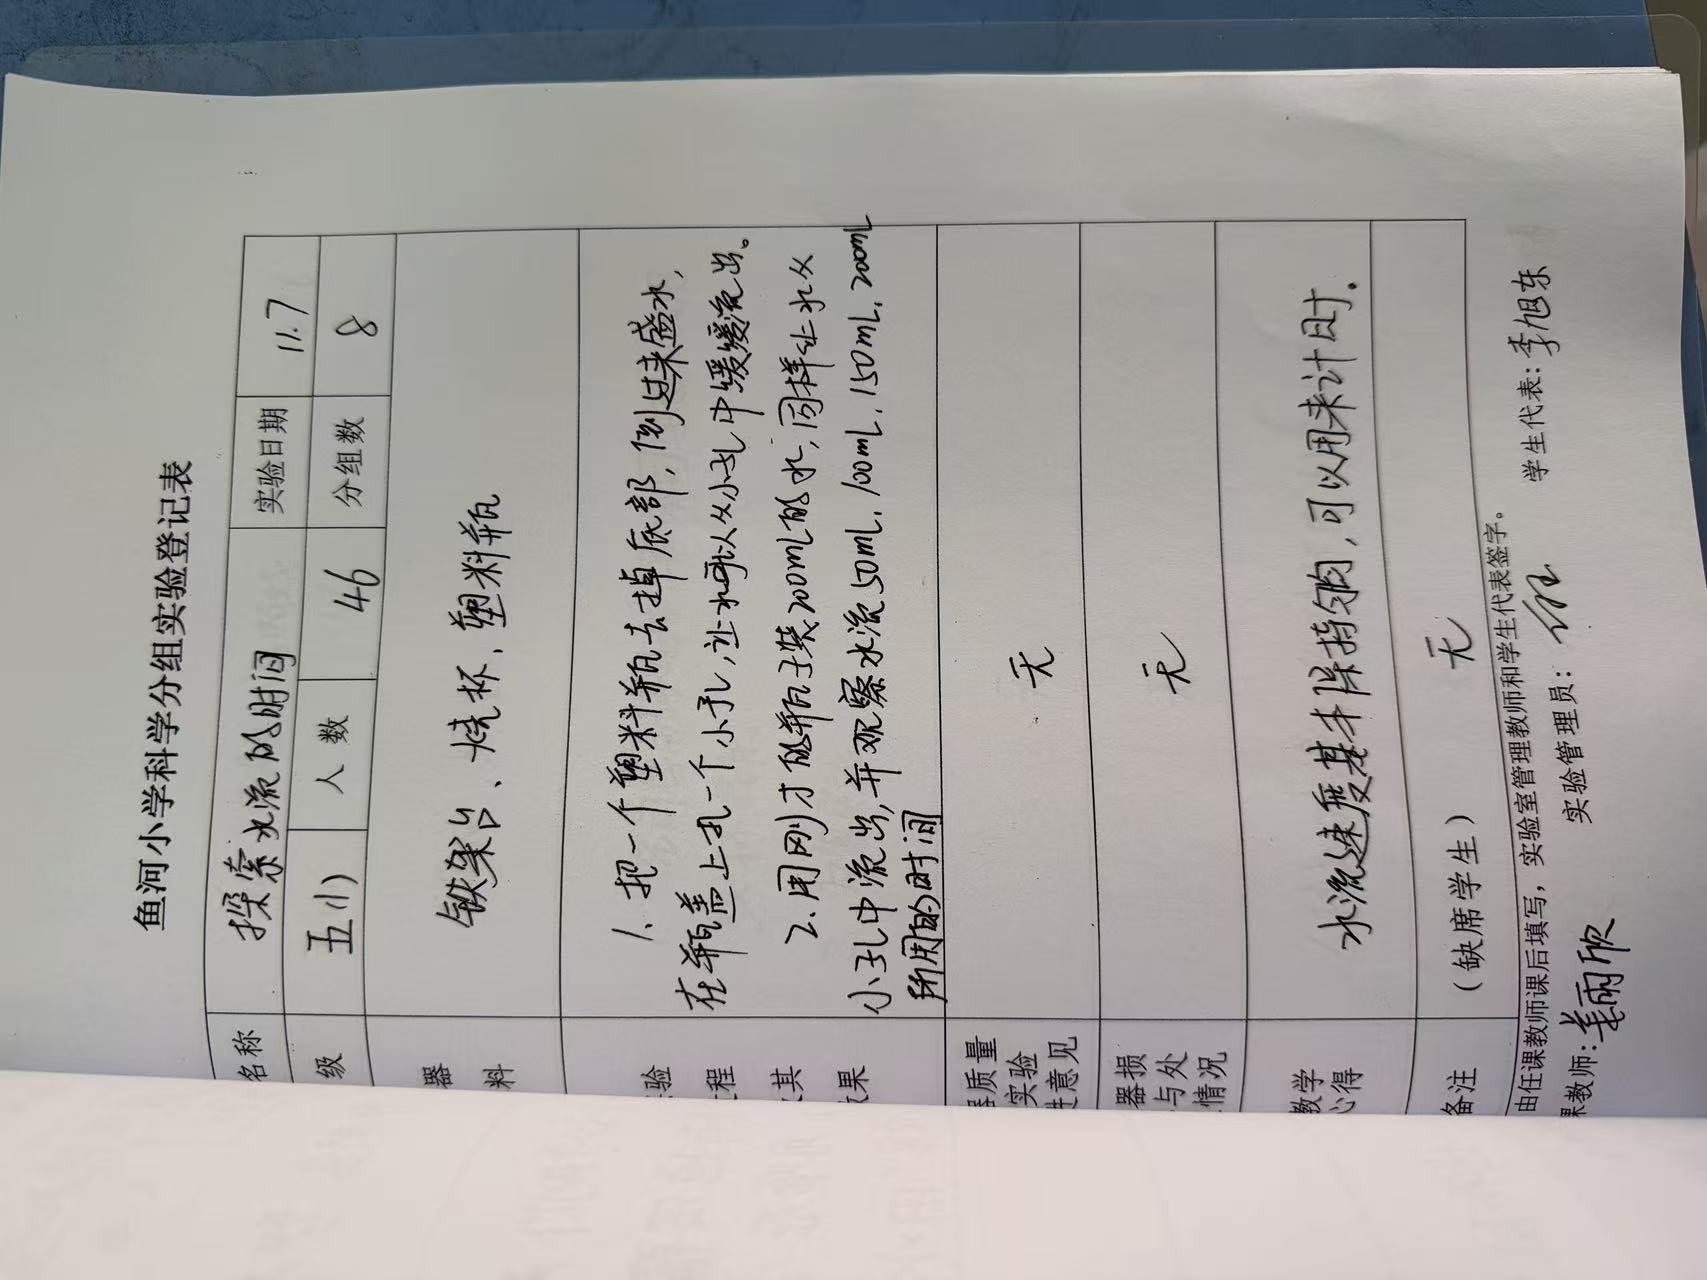 鱼河小学科学分组实验登记表
名称 探索水流的时间 实验日期 11.7
级 五(1) 人数 46 分组数 8
器
料
铁架台、烧杯、塑料瓶
验
程
其
果
1. 把一个塑料瓶去掉底部,倒过来盛水,
在瓶盖上扎一个小孔,让水可以从小孔中缓缓流出。
2.用刚才的瓶子装200mL的水,同样让水从
小孔中流出,并观察水流50mL,100mL,150mL,200mL
所用的时间
质量
实验
意见
无
器损
与处
情况
无
教学
心得
水流速度基本保持均匀,可以用来计时.
备注 (缺席学生) 无
由任课教师课后填写,实验室管理教师和学生代表签字。
课教师: 姜丽欣 实验管理员: 学生代表: 李旭东